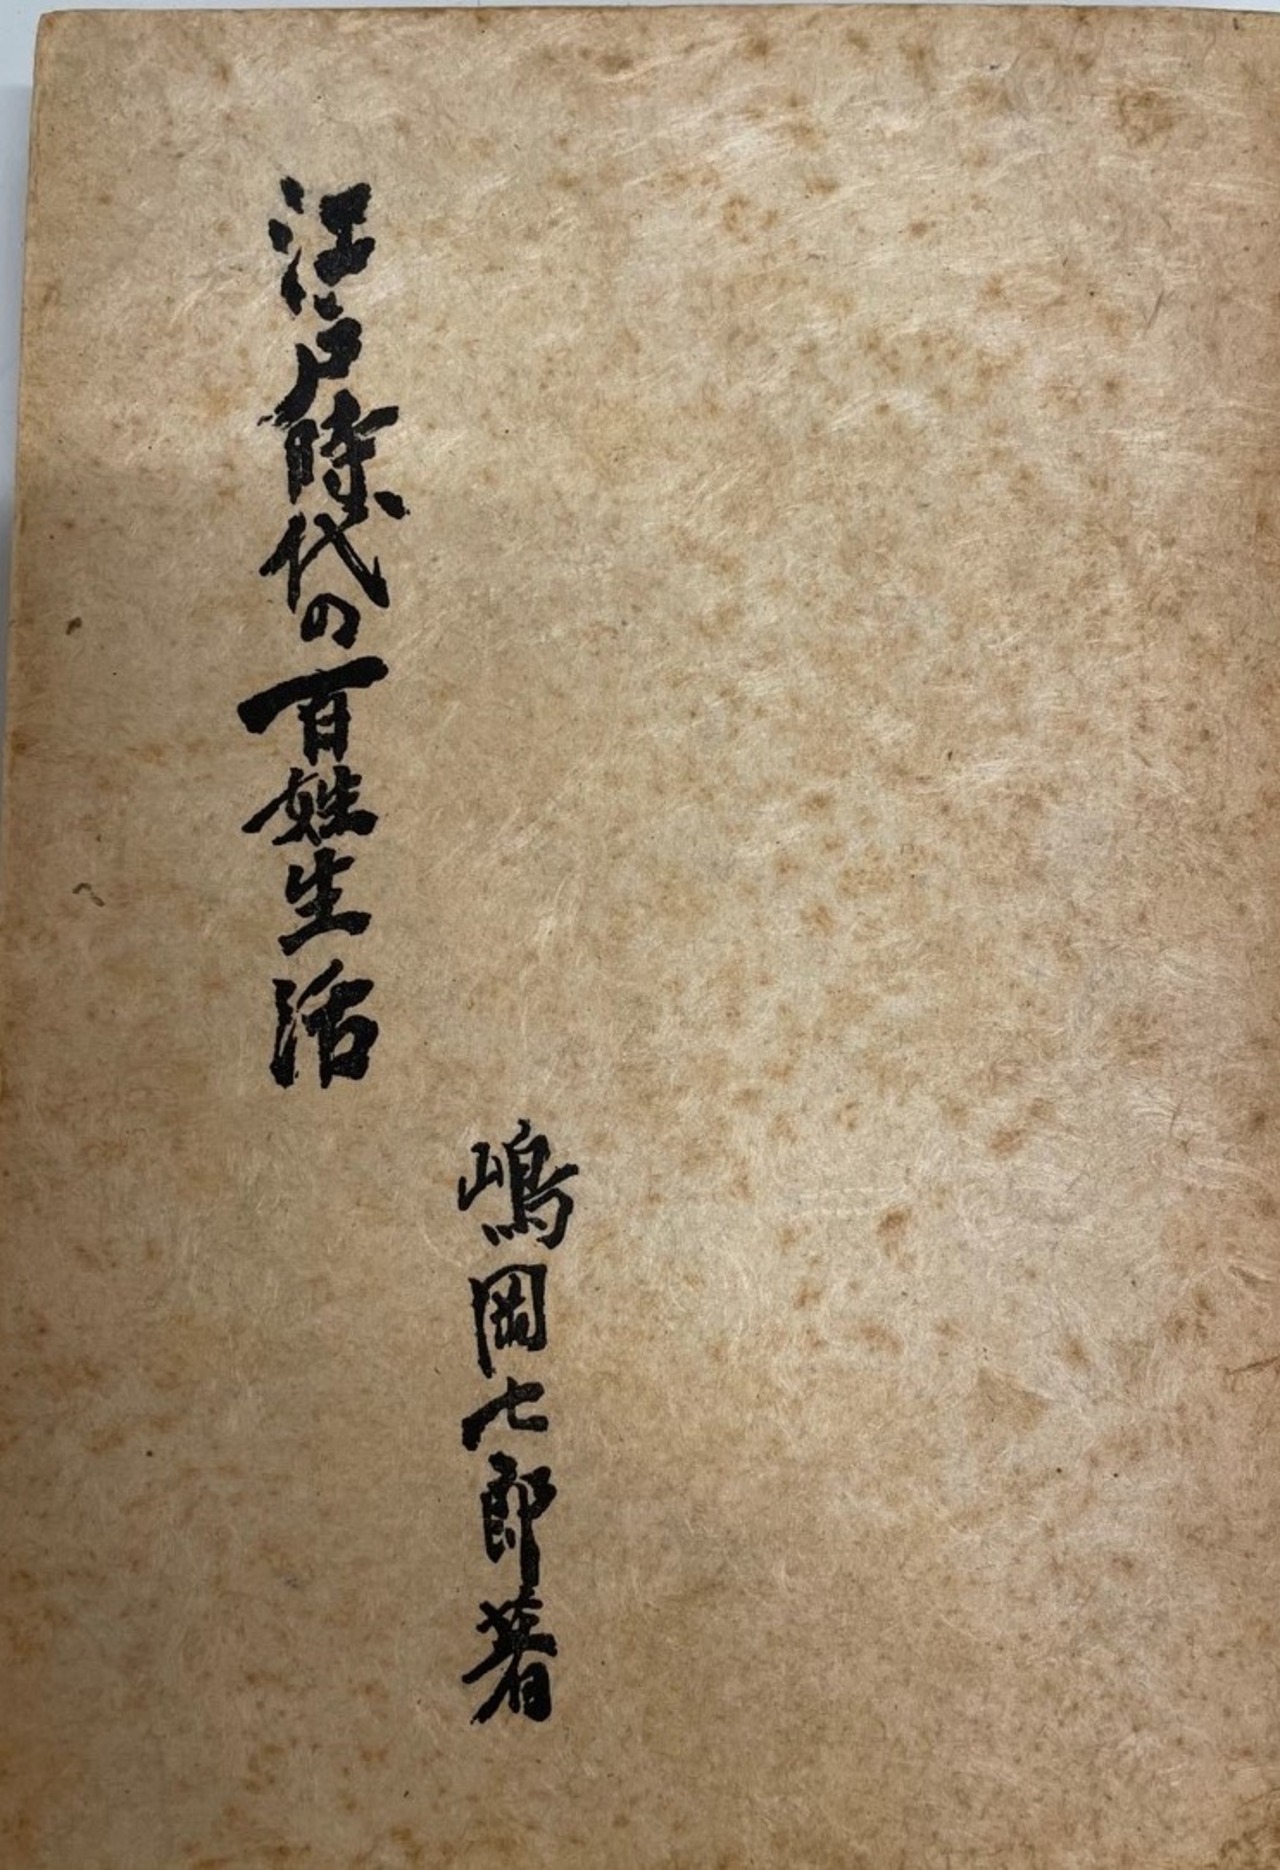 江戸時代の百姓生活
嶋岡七郎著